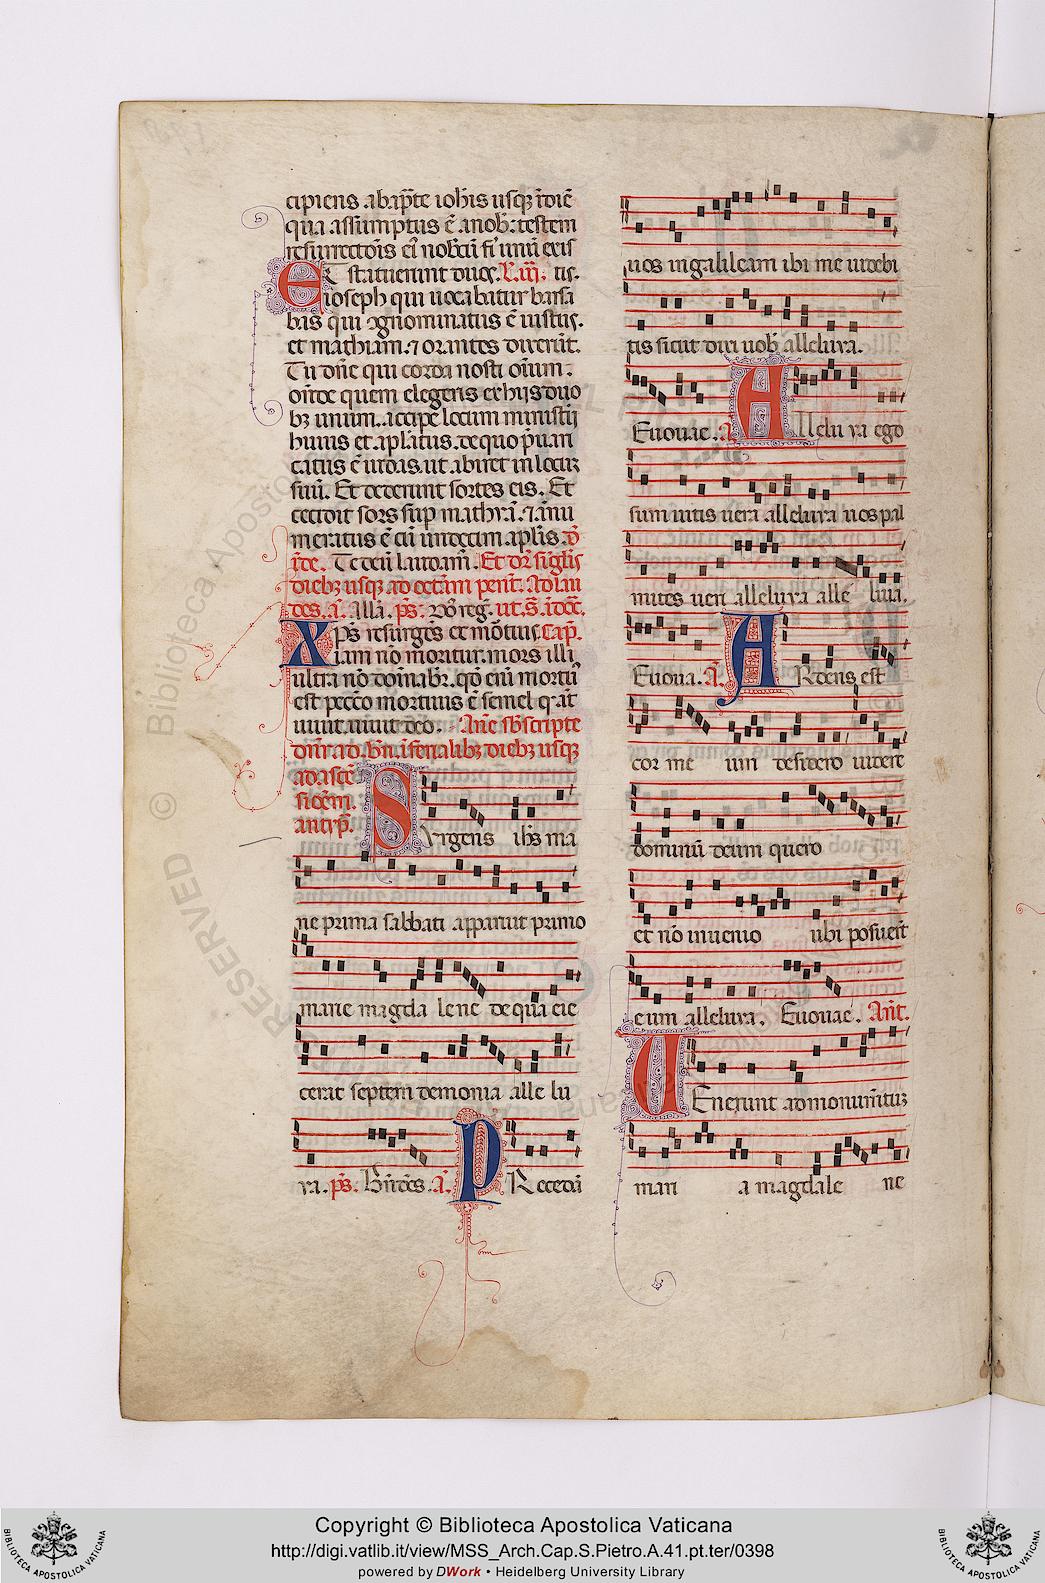 cipiens a bap̄te ioh̄is usqȝ ī diē
qua assūmptus ē a nob̄: testem
resurrectōis ei nobcū fi unū exis
Et statuerunt duos. L. iii. tis.
ioseph qui uocabatur barsa
bas qui ɔgnominatus ē iustus.
et mathiam. ⁊ orantes dixerūt.
Tu dn̄e qui corda nosti oīum:
on̄de quem elegeris ex hijs duo
bȝ unum. accipe locum ministij
huius et apl̄atus. de quo p̄uari
catus ē iudas. ut abiret in locuȝ
suū. Et dederunt sortes eis. Et
cecidit sors sup mathyā. ⁊ ānu
meratus ē cū undecim apl̄is.
Te deū laudam̄. Et dr̄ sīgl̄is
diebȝ usqȝ ad octām pent̄. Ad lau
des. ā. All̄a. ps̄. Dn̄s reḡ. ut. s̄.
Xps̄ resurgēs ex mōtuis Cap̄.
iam nō moritur. mors illi
ultra nō domīabr̄. qd̄ eiū mortu
est pecc̄o mortuus ē semel q̄ āt
uiuit. uiuit deo. Ān̄e sb̄scripte
dnr̄ ad bn̄ ī ferialibȝ diebȝ usqȝ
ad ascē
siōem.
antyp̄.
Surgens ih̄s ma
ne prima sabbati apparuit primo
marie magda lene de qua eie
cerat septem demonia alle lu
ya. ps̄. Bn̄dc̄s. ā. P Recedā
uos in galileam ibi me uidebi
tis sicut dixi uob̄ alleluya.
Euouae. ā. Alleluya ego
sum uitis uera alleluya uos pal
mites ueri alleluya alle luia.
Euoua. ā. ARdens est
cor me um desidero uidere
dominū deum quero
et nō inuenio ubi posuer̄t
eum alleluya. Euouae. Ānt̄.
UEnerunt ad monumītuȝ
mari a magdale ne
RESERVED © Biblioteca Apostolica Vaticana
BIBLIOTECA APOSTOLICA VATICANA
Copyright © Biblioteca Apostolica Vaticana
http://digi.vatlib.it/view/MSS_Arch.Cap.S.Pietro.A.41.pt.ter/0398
powered by DWork • Heidelberg University Library
BIBLIOTECA APOSTOLICA VATICANA